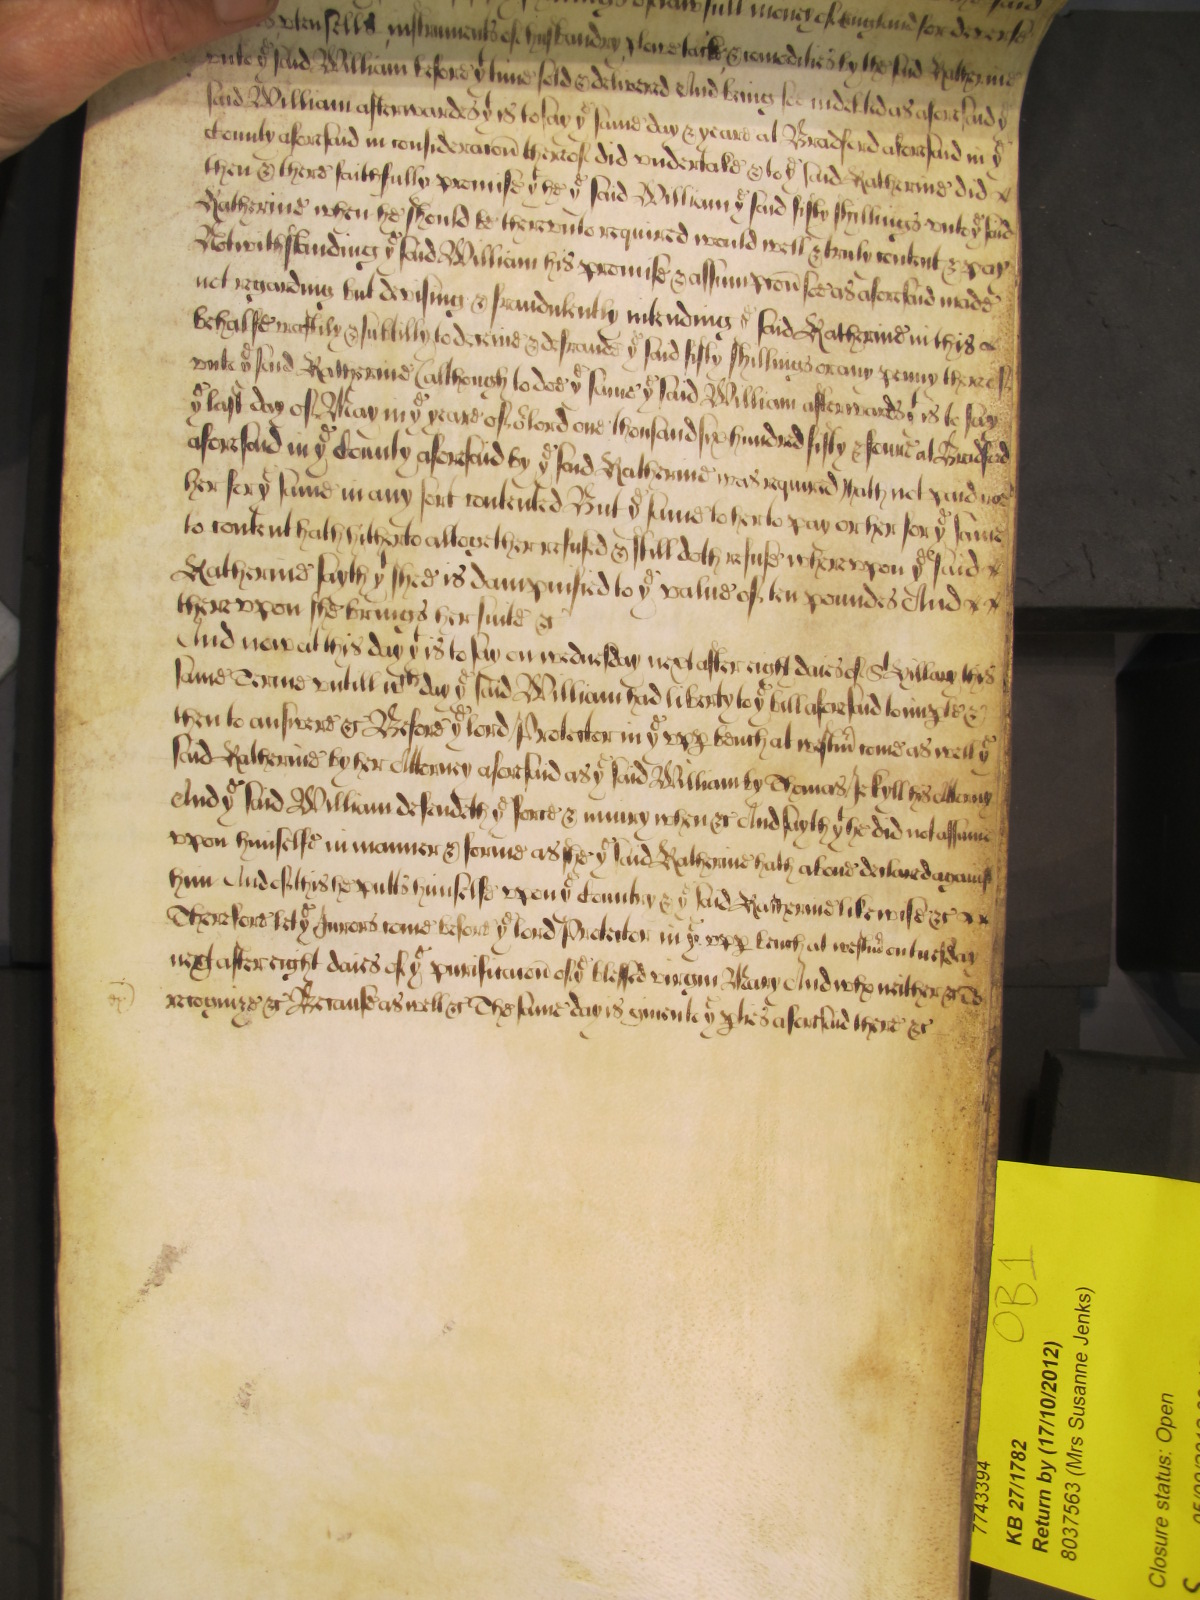 shillings of lawfull money of England for diverse
vtensells instruments of husbandry plow tackle & comodities by the said Katherine
vnto ye said William before yt time sold & delivered And being soe indebted as aforesaid ye
said William afterwardes yt is to say ye same day & yeare at Bradford aforesaid in ye
County aforesaid in consideracon thereof did vndertake & to ye said Katherine did
then & there faithfully promise yt he ye said William ye said fifty shillings vnto ye said
Katherine when he should be therevnto required would well & truly content & pay
Notwithstanding ye said William his promise & assumpcon soe as aforesaid made
not regarding but devising & fraudulently intending ye said Katherine in this
behalfe craftily & subtilly to deceive & defraude ye said fifty shillings or any penny thereof
vnto ye said Katherine (although to doe ye same ye said William afterwards yt is to say
ye last day of May in ye yeare of or lord one thousand six hundred fifty & foure at Bradford
aforesaid in ye County aforesaid by ye said Katherine was required) hath not paid nor
her for ye same in any sort contented But ye same to her to pay or her for ye same
to content hath hitherto altogether refused & still doth refuse wherevpon ye said
Katherine sayth yt shee is dampnified to ye value of ten poundes And
therevpon she brings her suite &c
And now at this day yt is to say on wednesday next after eight daies of St Hillary this
same Terme vntill wch day ye said William had liberty to ye bill aforesaid to imple &
then to answere &c Before ye lord Protector in ye vpp bench at westmr come as well ye
said Katherine by her Attorney aforesaid as ye said William by Thomas Jekyll his Attorny
And ye said William defendeth ye force & iniury when &c And sayth yt he did not assume
vpon himselfe in manner & forme as she ye said Katherine hath aboue declared against
him And of this he putts himselfe vpon ye Country & ye said Katherine likewise &c
Therefore let ye Jurors come before ye lord Protector in ye vpp bench at westmr on tuesday
next after eight daies of ye purificacon of ye blessed virgin Mary And who neither &c To
recognize &c Because as well &c The same day is given to ye pties aforesaid there &c
OB1
7743394
KB 27/1782
Return by (17/10/2012)
8037563 (Mrs Susanne Jenks)
Closure status: Open